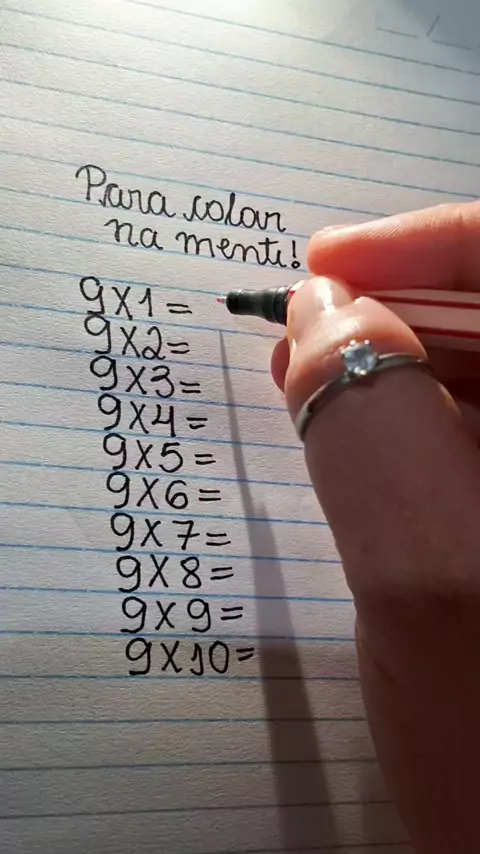 Para colar
na mente!
9X1=
9X2=
9X3=
9X4=
9X5=
9X6=
9X7=
9X8=
9X9=
9X10=